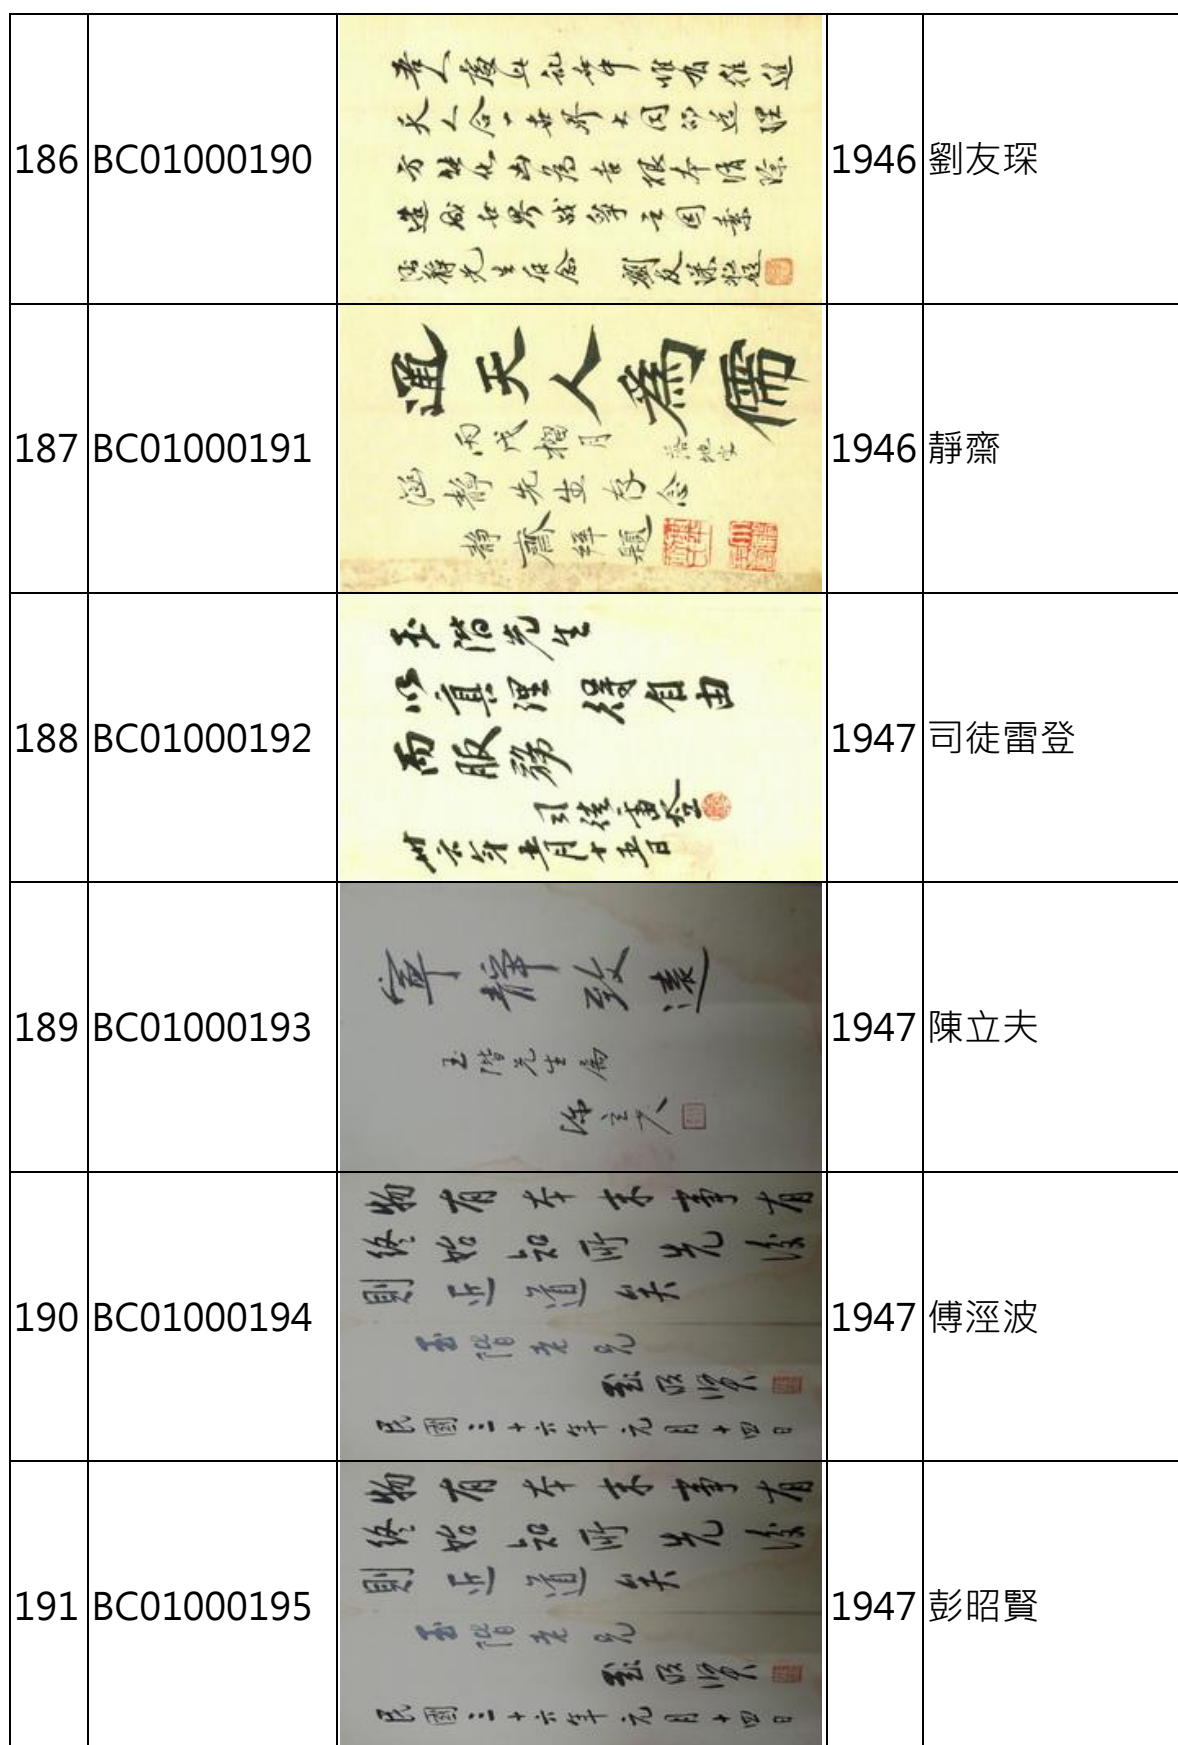 186 BC01000190
吾人處此亂世中惟有推進
天人合一世界大同的道理
方能化凶為吉根本消除
造成世界战爭之因素
涵靜先生存念 劉友琛
1946 劉友琛
187 BC01000191
通天人為儒
丙戌榴月
涵靜先生存念
靜齋拜題
1946 靜齋
188 BC01000192
玉階先生
以真理得自由
而服務
司徒雷登
卅六年月十五日
1947 司徒雷登
189 BC01000193
寧靜致遠
玉階先生屬
陳立夫
1947 陳立夫
190 BC01000194
物有本末事有
終始知所先後
則近道矣
玉階老兄
彭昭賢
民國三十六年元月十四日
1947 傅涇波
191 BC01000195
物有本末事有
終始知所先後
則近道矣
玉階老兄
彭昭賢
民國三十六年元月十四日
1947 彭昭賢